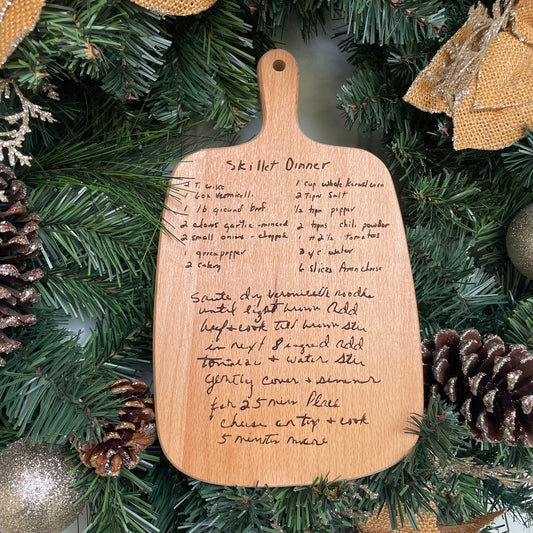 Skillet Dinner
2 T. crisco
1 6oz vermicelli
1 lb ground beef
2 cloves garlic-minced
2 small onions - chopped
1 green pepper
2 celery
1 cup whole kernel corn
2 tspn salt
1/2 tspn pepper
2 tspns chili powder
1 #2 1/2 tomatoes
3/4 c. water
6 slices Amn cheese
Saute dry vermicelli noodles
until light brown Add
beef + cook till brown stir
in next 8 ingred Add
tomatoes + water stir
gently cover + simmer
for 25 min Place
cheese on top + cook
5 minutes more